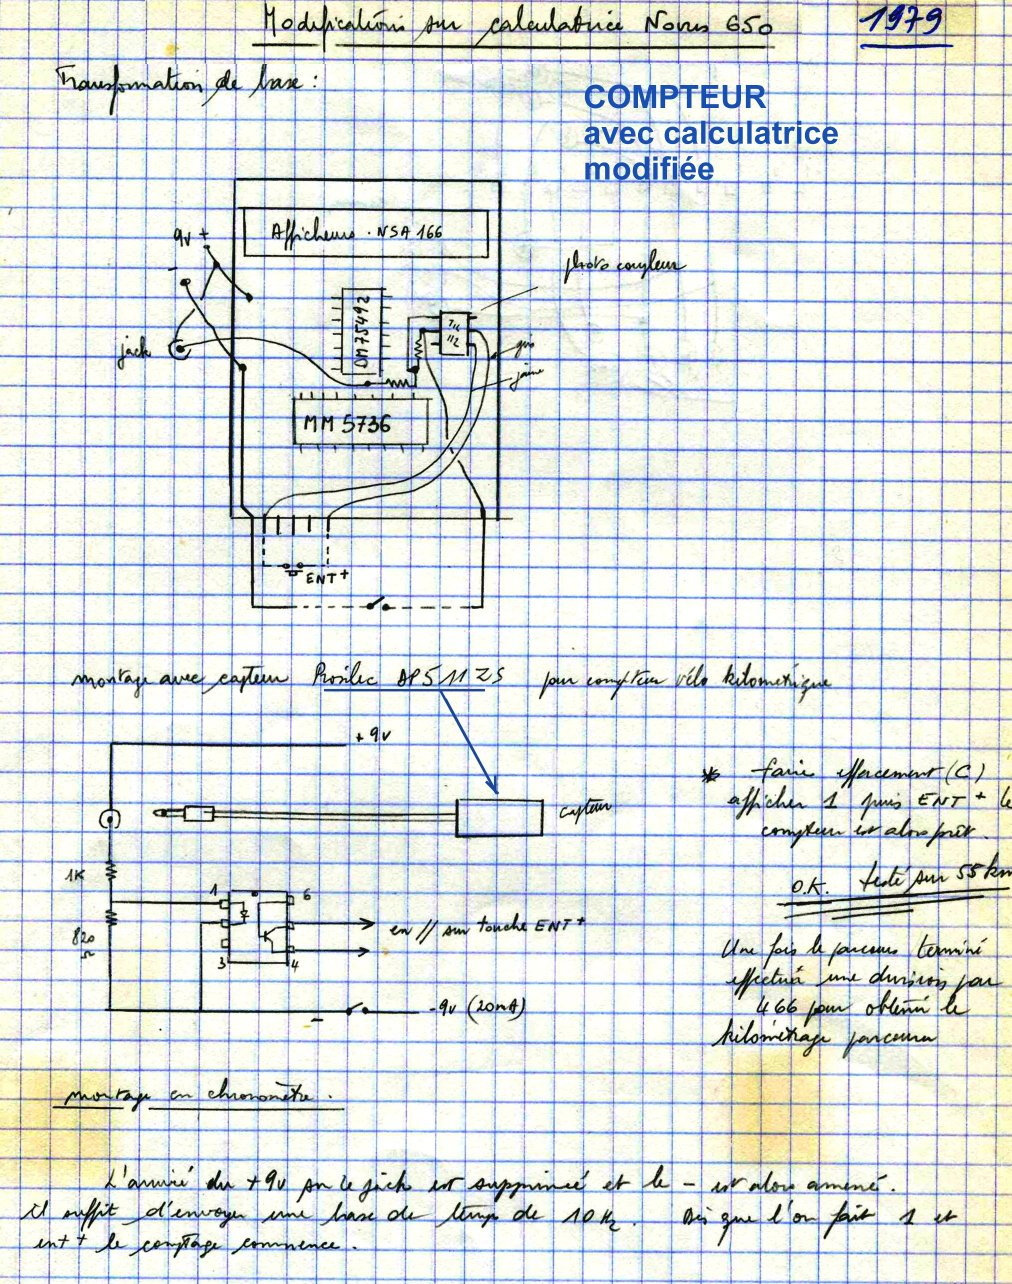 Modifications sur calculatrice Novus 650
1979
Transformation de base :
COMPTEUR
avec calculatrice
modifiée
9v +
-
Afficheurs . NSA 166
photo coupleur
DM75492
TIL
112
gris
jaune
jack
MM 5736
ENT+
montage avec capteur Prosilec AP511ZS pour compteur vélo kilométrique
+ 9v
capteur
1K
820
Ω
1
6
3
4
en // sur touche ENT+
-
-9v (20mA)
* faire effacement (C)
afficher 1 puis ENT+ le
compteur est alors prêt.
O.K. testé sur 55 km
Une fois le parcours terminé
effectué une division par
466 pour obtenir le
kilométrage parcouru
montage en chronomètre .
L'arrivé du +9v sur le jack est supprimée et le - est alors amené.
il suffit d'envoyer une base de temps de 10 Hz. Dès que l'on fait 1 et
ent + le comptage commence .